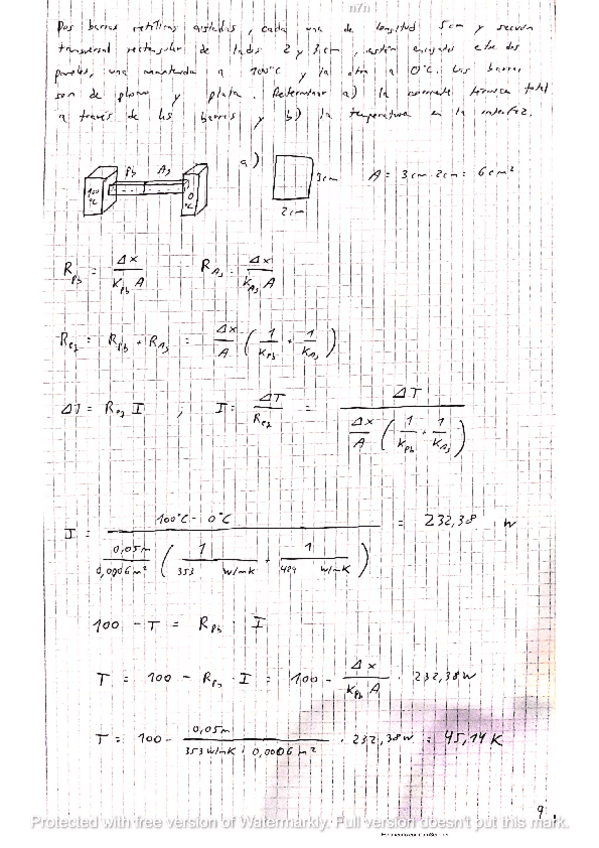 Dos barras metálicas aisladas, cada una de longitud 5 cm y sección
transversal rectangular de lados 2 y 3 cm, están entre dos
paredes, una mantenida a 100°C y la otra a 0°C. Las barras
son de plomo y plata. Determinar a) la corriente térmica total
a través de las barras y b) la temperatura en la interfaz.
Pb Ag
100 °C
0 °C
a)
3cm
2cm
A = 3cm · 2cm = 6cm²
R_Pb = Δx / K_Pb A    R_Ag = Δx / K_Ag A
R_eq = R_Pb + R_Ag = Δx / A ( 1 / K_Pb + 1 / K_Ag )
ΔT = R_eq I ; I = ΔT / R_eq = ΔT / ( Δx / A ( 1 / K_Pb + 1 / K_Ag ) )
I = 100°C - 0°C / ( 0,05m / 0,0006m² ( 1 / 353 W/mK + 1 / W/mK ) ) = 232,38 W
100 - T = R_Pb · I
T = 100 - R_Pb · I = 100 - Δx / K_Pb A · 232,38W
T = 100 - 0,05m / 353W/mK · 0,0006m² · 232,38W = 45,14 K
9.
Protected with free version of Watermarkly. Full version doesn't put this mark.